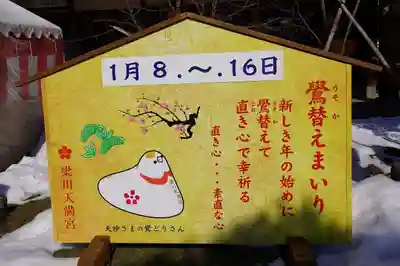 1月8.～.16日
鷽替えまいり
うそか
新しき年の始めに
鷽替えて
うそか
直き心で幸祈る
なお
直き心・・・素直な心
梁川天満宮
天神さまの鷽どりさん